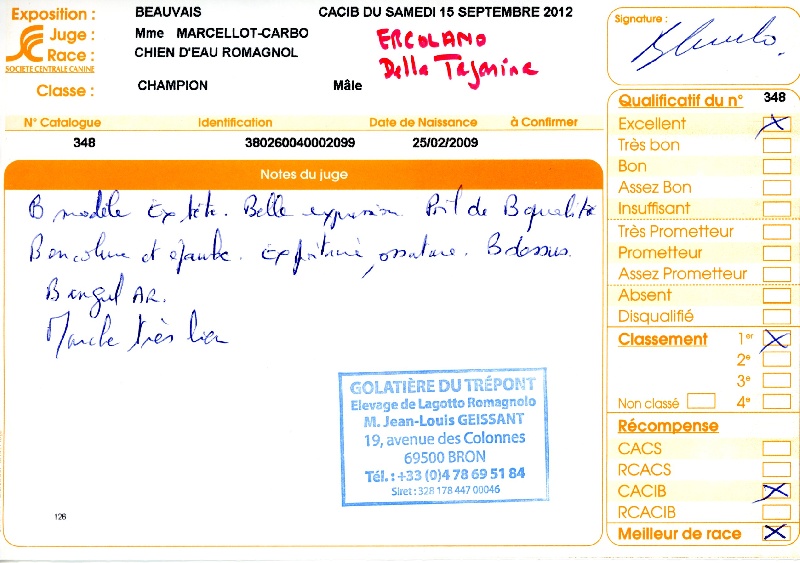 Exposition : BEAUVAIS CACIB DU SAMEDI 15 SEPTEMBRE 2012
Juge : Mme MARCELLOT-CARBO
Race : CHIEN D'EAU ROMAGNOL
SOCIÉTÉ CENTRALE CANINE
Classe : CHAMPION Mâle
ERCOLANO
Della
N° Catalogue Identification Date de Naissance à Confirmer
348 380260040002099 25/02/2009
Notes du juge
B modèle Ex tête. Belle expression. Poil de B qualité
B encolure et épaule. Ex poitrine, ossature. B dessus.
B angul AR.
Marche très bien
GOLATIÈRE DU TRÉPONT
Elevage de Lagotto Romagnolo
M. Jean-Louis GEISSANT
19, avenue des Colonnes
69500 BRON
Tél. : +33 (0)4 78 69 51 84
Siret : 328 178 447 00046
126
Signature :
Qualificatif du n° 348
Excellent X
Très bon
Bon
Assez Bon
Insuffisant
Très Prometteur
Prometteur
Assez Prometteur
Absent
Disqualifié
Classement 1er X
2e
3e
Non classé 4e
Récompense
CACS
RCACS
CACIB X
RCACIB
Meilleur de race X